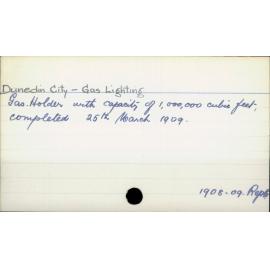 Dunedin City - Gas Lighting
Gas Holder with capacity of 1,000,000 cubic feet,
completed 25th March 1909.
1908-09 Repts